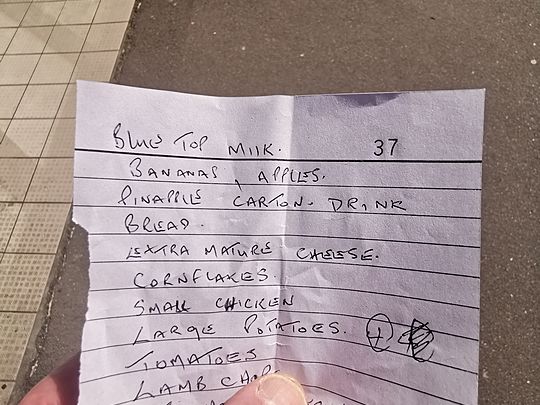 BLUE TOP MILK. 37
BANANAS, APPLES.
PINAPPLE CARTON. DRINK
BREAD.
EXTRA MATURE CHEESE.
CORNFLAKES.
SMALL CHICKEN
LARGE POTATOES. 1
TOMATOES
LAMB CHOP